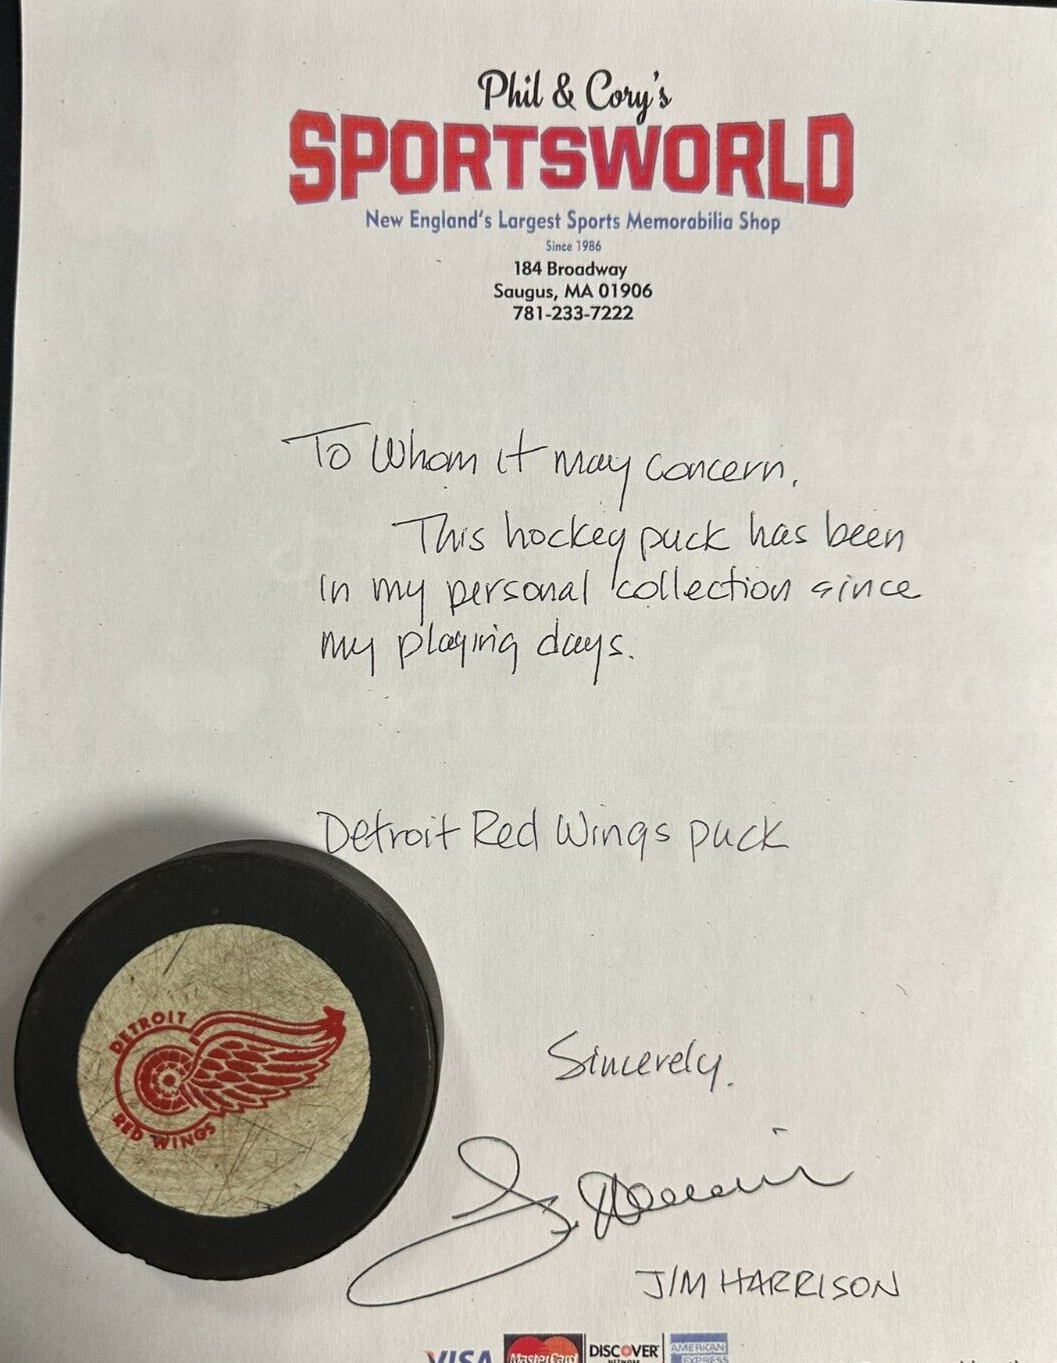 Phil & Cory's
SPORTSWORLD
New England's Largest Sports Memorabilia Shop
Since 1986
184 Broadway
Saugus, MA 01906
781-233-7222
To Whom it may concern,
This hockey puck has been
in my personal collection since
my playing days.
Detroit Red Wings puck
DETROIT
RED WINGS
Sincerely,
JIM HARRISON
VISA MasterCard DISCOVER AMERICAN
NETWORK EXPRESS